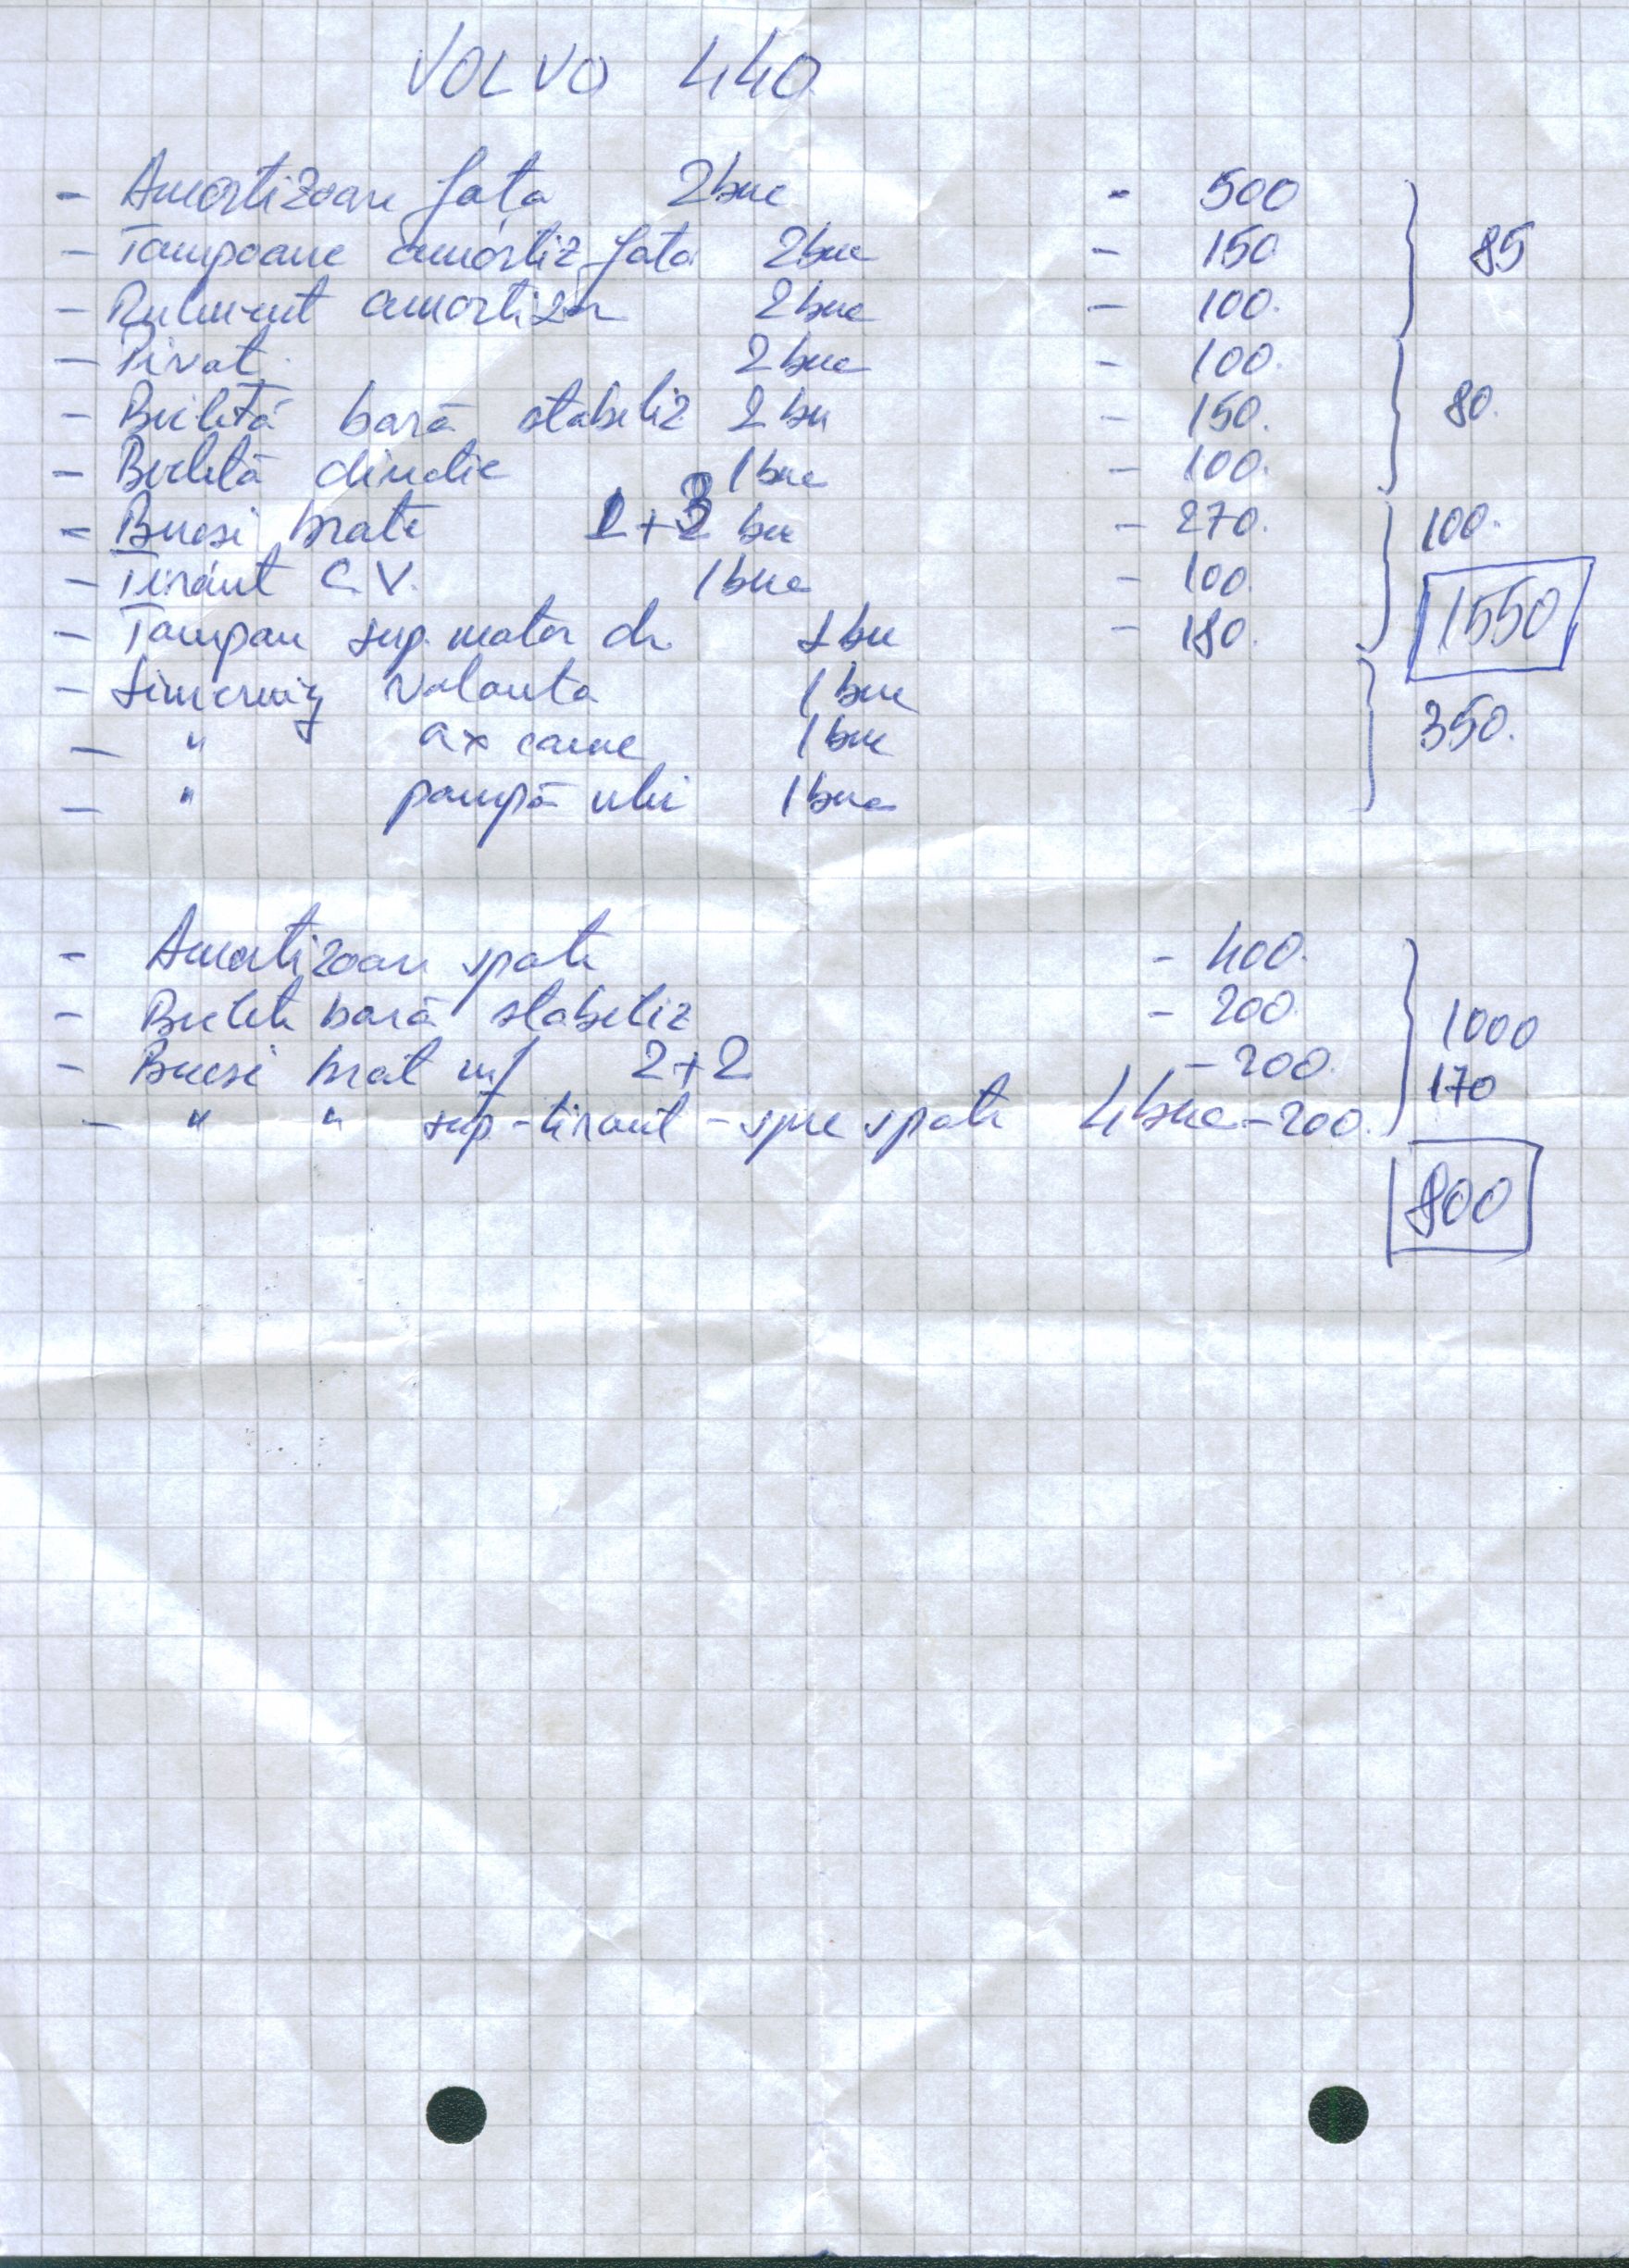 VOLVO 440
- Amortizoare fata 2buc - 500
- Tampoane amortiz fata 2buc - 150
85
- Rulment amortizor 2buc - 100.
- Pivot 2buc - 100.
- Bieletă bară stabiliz 2bu - 150.
80.
- Bieletă directie 1buc - 100.
- Bucsi brate 1+3 bu - 270.
100.
- Tirant C.V. 1buc - 100.
1550
- Tampon sup. motor dr 1bu - 180.
- Simering volanta 1buc
- " ax came 1buc
350.
- " pompă ulei 1buc
- Amortizoare spate - 400.
- Bielete bară stabiliz - 200.
1000
- Bucsi brat inf 2+2 - 200.
170
- " " sup-tirant-spre spate 4buc-200.
800